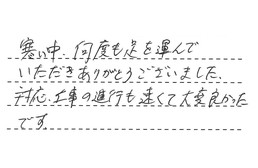 寒い中、何度も足を運んで
いただきありがとうございました。
対応、工事の進行も速くて大変良かった
です。